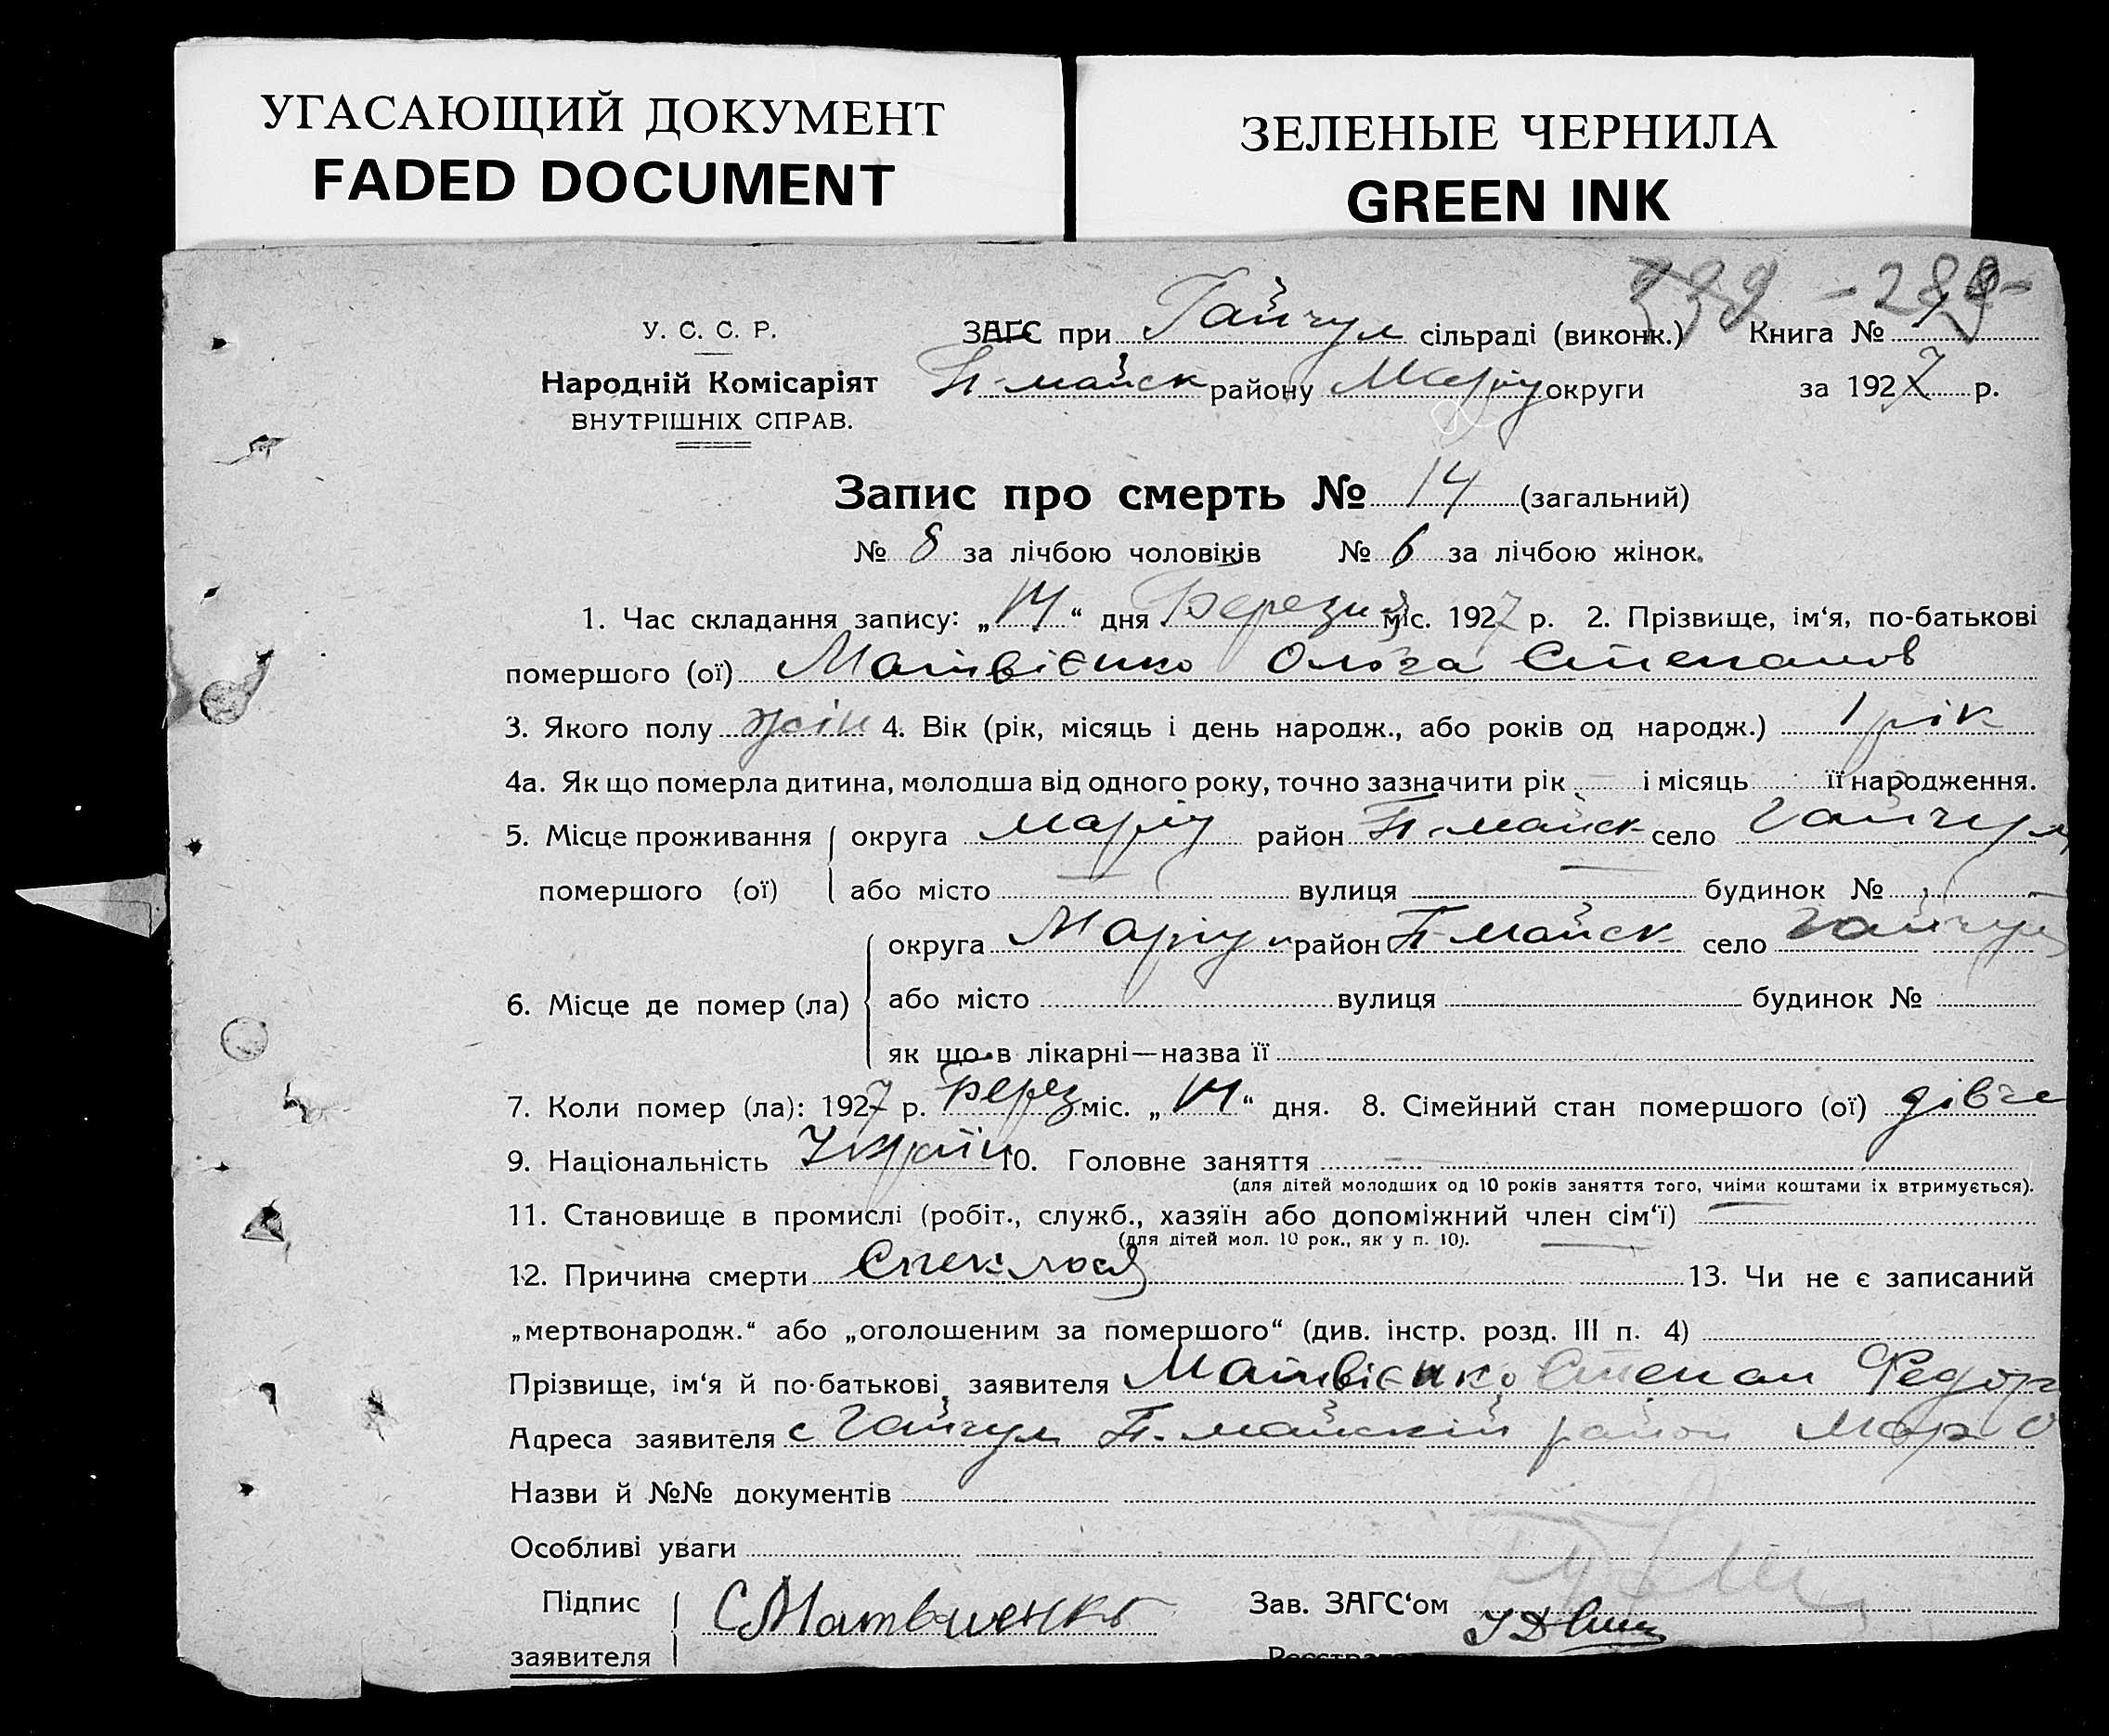 УГАСАЮЩИЙ ДОКУМЕНТ
FADED DOCUMENT
ЗЕЛЕНЫЕ ЧЕРНИЛА
GREEN INK
У. С. С. Р.
Народній Комісаріят
ВНУТРІШНІХ СПРАВ.
ЗАГС при Гайчул сільраді (виконк.) Книга №
П-майск району Маріу округи за 1927 р.
Запис про смерть № 14 (загальний)
№ 8 за лічбою чоловіків № 6 за лічбою жінок.
1. Час складання запису: „14“ дня Березня міс. 1927 р. 2. Прізвище, ім‘я, по-батькові
помершого (ої) Матвієнко Ольга Степанов
3. Якого полу жін 4. Вік (рік, місяць і день народж., або років од народж.) 1 рік
4а. Як що померла дитина, молодша від одного року, точно зазначити рік — і місяць її народження.
5. Місце проживання округа Маріу район П-майск село Гайчул
помершого (ої) або місто — вулиця — будинок №
6. Місце де помер (ла) округа Маріу район П-майск село Гайчул
або місто вулиця будинок №
як що в лікарні—назва її
7. Коли помер (ла): 1927 р. Берез міс. „14“ дня. 8. Сімейний стан помершого (ої) дівче
9. Національність Україн 10. Головне заняття —
(для дітей молодших од 10 років заняття того, чиїми коштами їх втримується).
11. Становище в промислі (робіт., служб., хазяїн або допоміжний член сім‘ї) —
(для дітей мол. 10 рок., як у п. 10).
12. Причина смерти Спеклася 13. Чи не є записаний
„мертвонародж.“ або „оголошеним за помершого“ (див. інстр. розд. III п. 4)
Прізвище, ім‘я й по-батькові заявителя Матвієнко Степан Федор
Адреса заявителя с Гайчул П-майский район Мар о
Назви й №№ документів
Особливі уваги
Підпис заявителя СМатвиенко
Зав. ЗАГС‘ом